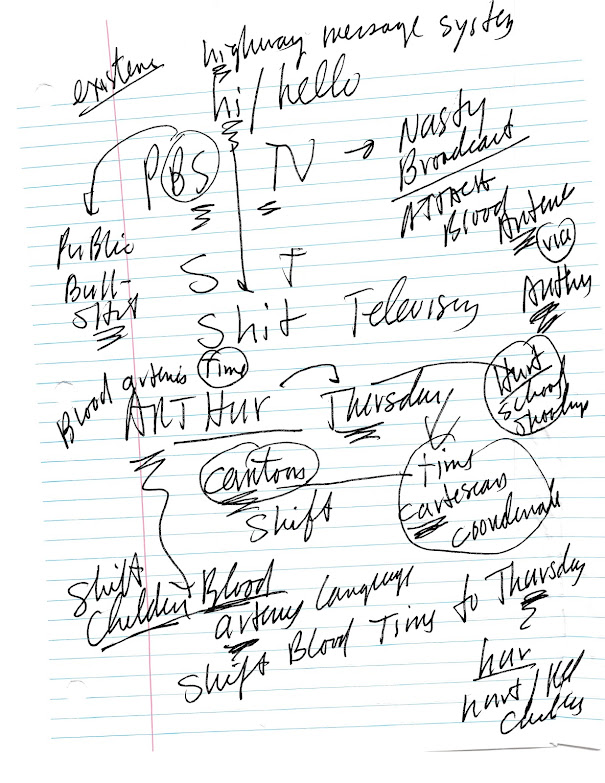 highway message system
existence
hi/hello
PBS TV → Nasty
Broadcast
Attack
Blood Artene
via
Public
Bull-
Shit
S T
Shit Television
Blood arteries Time
ARTHur Thursday
Hurt
School
Shooting
cartoons
time
cartesean
coordenate
Shift
Shift
Blood
artery Language
Shift Blood Time to Thursday
hur
hurt/Kill